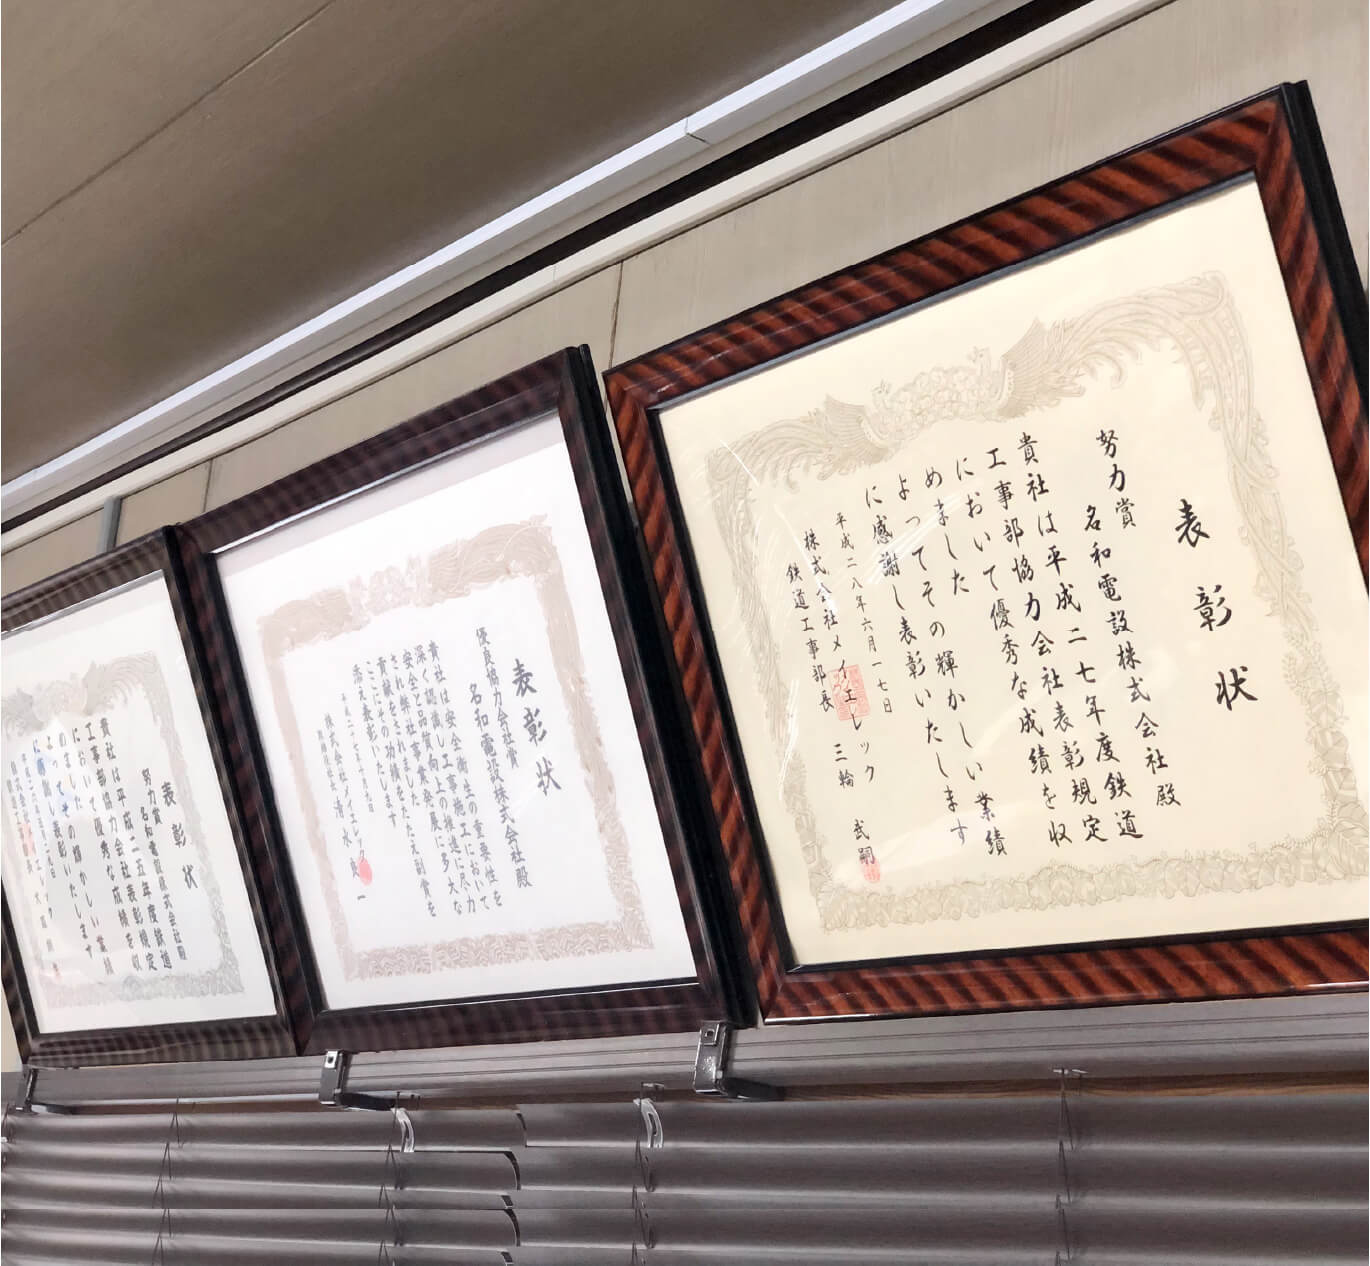 表彰状
努力賞
名和電設株式会社殿
貴社は平成二七年度鉄道
工事部協力会社表彰規定
において優秀な成績を収
めました
よってその輝かしい業績
に感謝し表彰いたします
平成二八年六月一七日
株式会社メイエレック
鉄道工事部長 三輪 武嗣
表彰状
優良協力会社賞
名和電設株式会社殿
貴社は安全衛生の重要性を
深く認識し工事施工において
安全と品質向上の推進に尽力
され弊社事業発展に多大な
貢献をされました
ここにその功績をたたえ副賞を
添え表彰いたします
平成二十七年十月九日
株式会社メイエレック
清水良一
表彰状
努力賞
名和電設株式会社殿
貴社は平成二五年度鉄道
工事部協力会社表彰規定
において優秀な成績を収
めました
よってその輝かしい業績
に感謝し表彰いたします